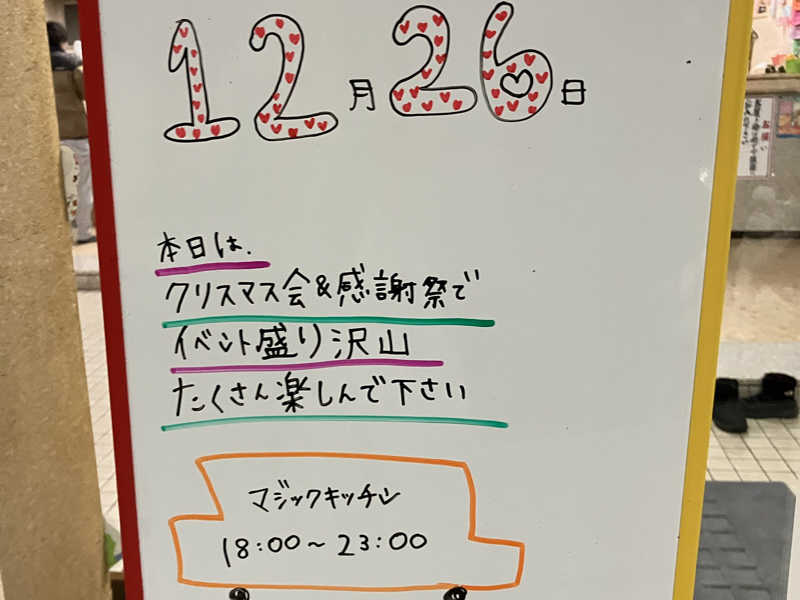 12月26日
本日は.
クリスマス会&感謝祭で
イベント盛り沢山
たくさん楽しんで下さい
マジックキッチン
18:00~23:00
お願い